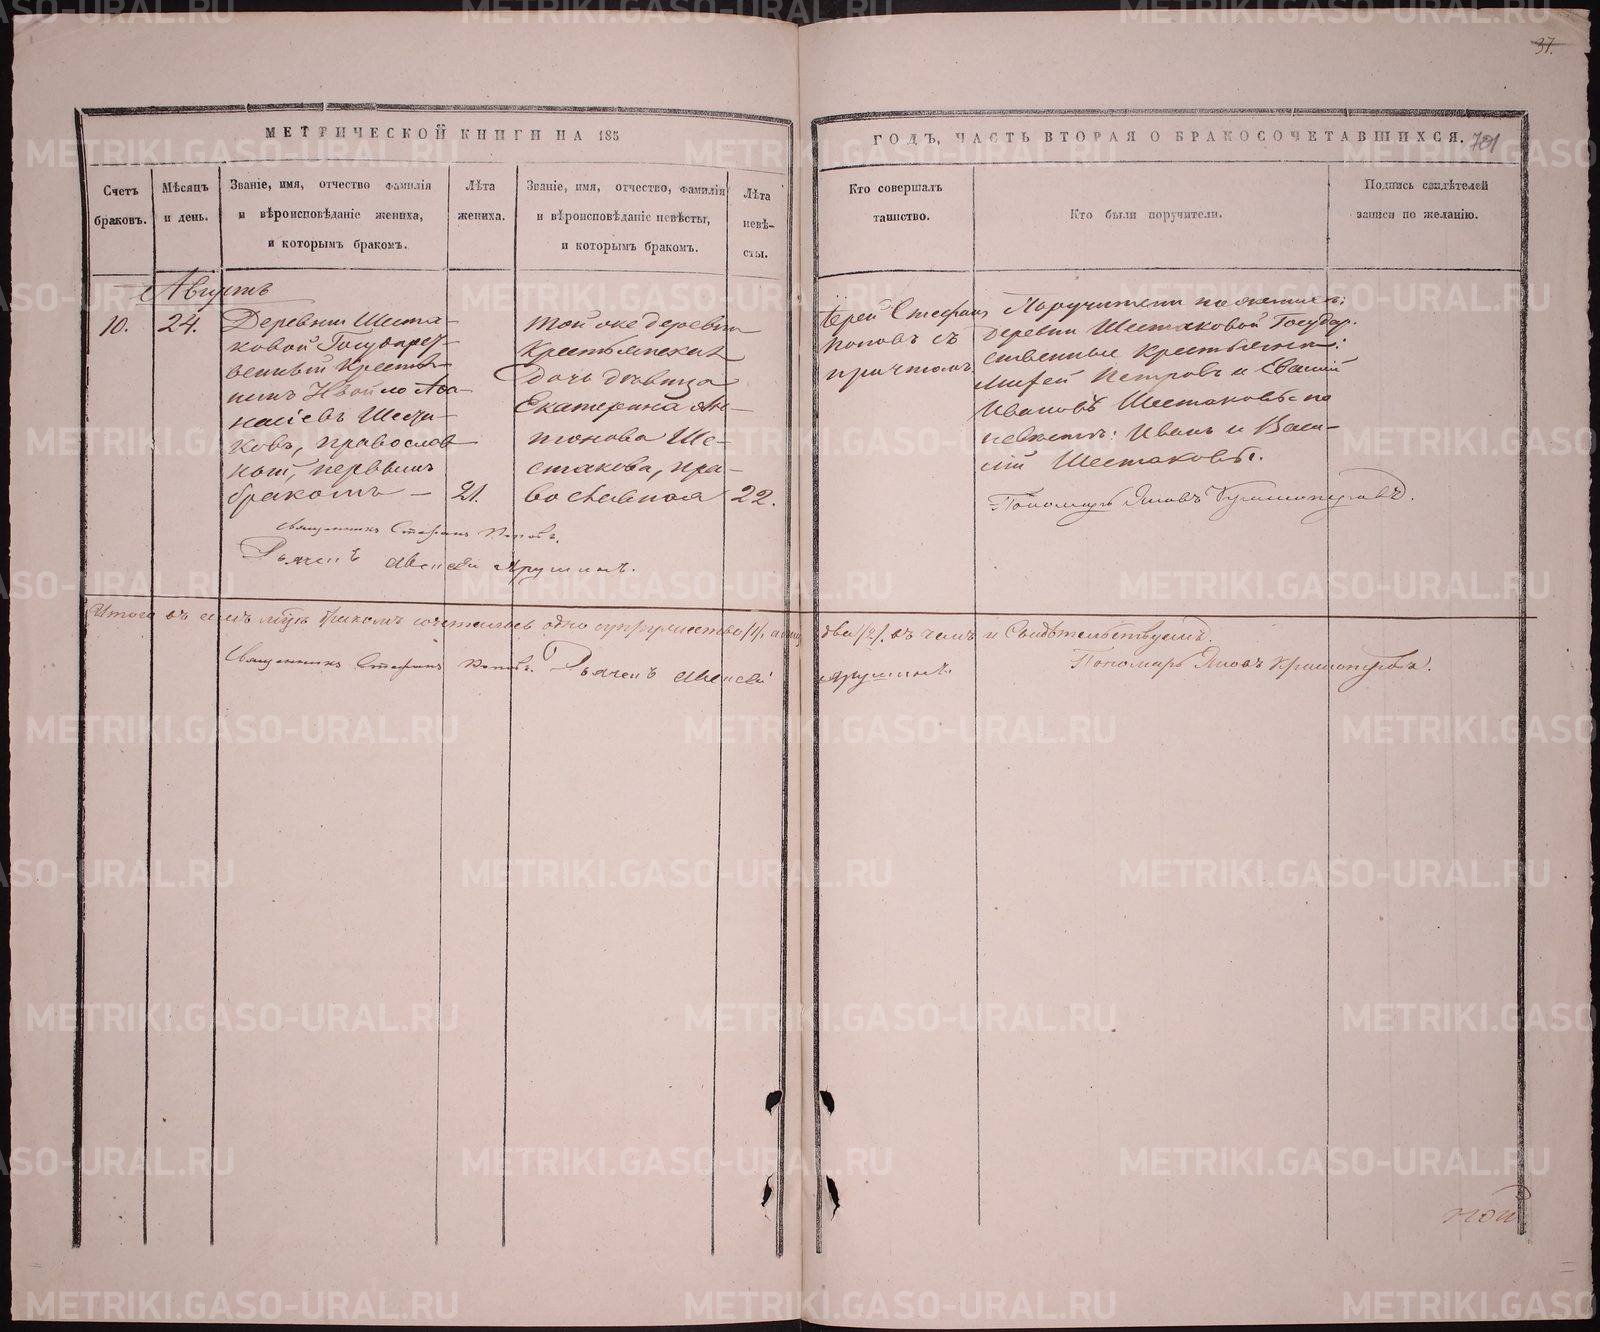 37.
МЕТРИЧЕСКОЙ КНИГИ НА 185
ГОДЪ, ЧАСТЬ ВТОРАЯ О БРАКОСОЧЕТАВШИХСЯ.
701
Счетъ браковъ.
Мѣсяцъ и день.
Званіе, имя, отчество фамилія
и вѣроисповѣданіе жениха,
и которымъ бракомъ.
Лѣта
жениха.
Званіе, имя, отчество, фамилія
и вѣроисповѣданіе невѣсты,
и которымъ бракомъ.
Лѣта
невѣ-
сты.
Кто совершалъ
таинство.
Кто были поручители.
Подпись свидѣтелей
записи по желанію.
Августъ
10.
24.
Деревни Шеста-
ковой Государст
венный Крестья
нинъ
насіевъ Шеста-
ковъ, православ
ной, первымъ
бракомъ —
21.
Той же деревни
Крестьянская
Дочь дѣвица
Екатерина Ан-
тонова Ше-
стакова, пра-
вославная
22.
Іерей Стефанъ
Поповъ съ
причтомъ
Поручители по женихѣ:
Деревни Шестаковой Государ.
ственные Крестьяне:
Петровъ и
Ивановъ Шестаковы по
невѣстѣ: Иванъ и Васи-
лій Шестаковы.
Пономарь Яковъ
Священникъ Стефанъ Поповъ.
Дьячекъ Алексѣй
Итого въ семъ бракомъ сочеталось одно супружество /1/, а лицъ два /2/. въ чемъ и Свидѣтельствуемъ.
Священникъ Стефанъ Поповъ. Дьячекъ Алексѣй
Пономарь Яковъ
METRIKI.GASO-URAL.RU